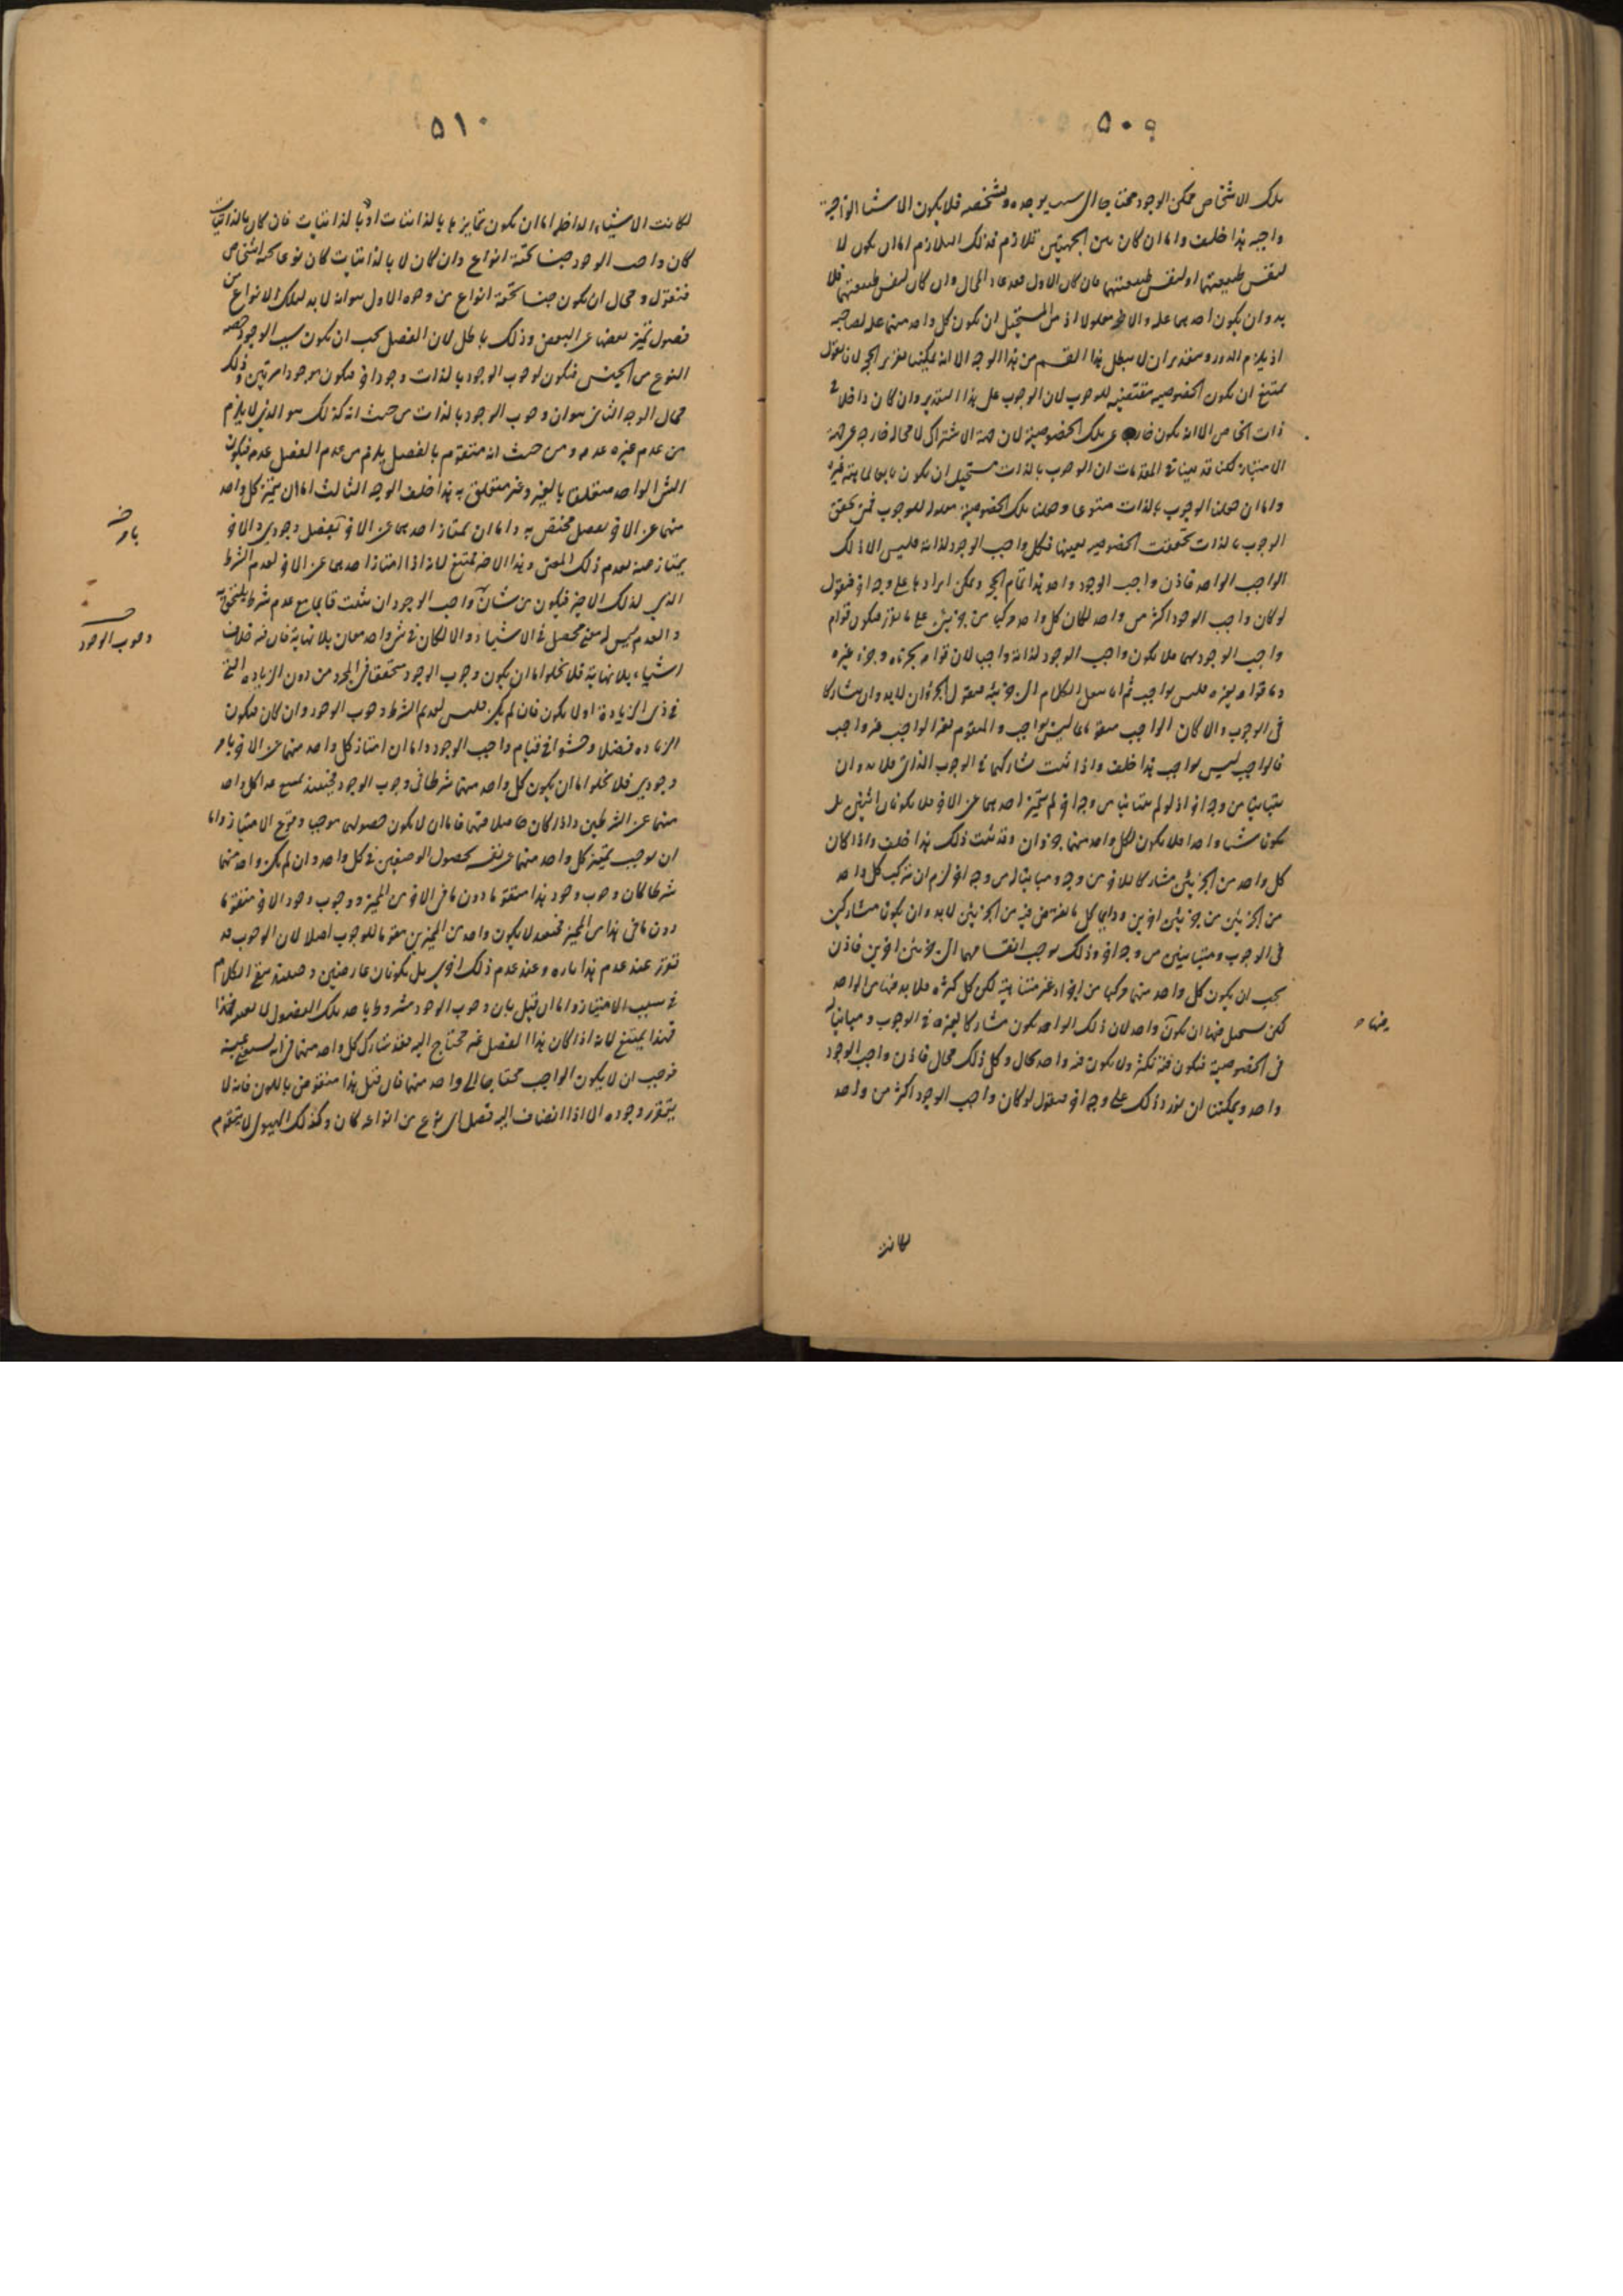 ٥٠٩
تلك الاشخاص ممكن الوجود محتاجا الى سبب يوجده ويشخصه فلا يكون الاشيا الواجبة
واجبه هذا خلف واما ان كان بين الجهتين تلازم فذلك التلازم اما ان يكون لا
لنفس طبيعتهما او لنفس طبيعتهما فان كان الاول فقد عاد المحال وان كان لنفس طبيعتهما فلا
بد وان يكون احدهما علة والاخر معلولا اذ من المستحيل ان يكون كل واحد منهما علة لصاحبه
اذ يلزم الدور وبتقدير ان لا يبطل هذا القسم من هذا الوجه الا انه يمكننا تقرير الحجة لانا نقول
يمتنع ان يكون الخصوصيه مقتضيه للوجوب لان الوجوب على هذا التقدير وان كان داخلا في
ذات الخاص الا انه يكون خارجا عن تلك الخصوصية لان جهة الاشتراك لا محالة خارجه عن جهة
الامتياز لكنا قد بينا في المقدمات ان الوجوب بالذات مستحيل ان يكون تابعا لماهية غيره
واما ان جعلنا الوجوب بالذات متبوعا وجعلنا تلك الخصوصية معلولة للوجوب فمتى تحقق
الوجوب بالذات تحققت الخصوصيه بعينها فكل واجب الوجود لذاته فليس الا ذلك
الواجب الواحد فاذن واجب الوجود واحد هذا تمام الحجة ويمكن ايرادها على وجه اخر فنقول
لو كان واجب الوجود اكثر من واحد لكان كل واحد مركبا من جزئين على ما نقرر فيكون قوام
واجب الوجود بهما فلا يكون واجب الوجود لذاته واجبا لان قوامه بجزئه وجزءه غيره
وما قوامه بغيره فليس بواجب ثم انا ننقل الكلام الى جزئيه فنقول الجزؤان لا بد وان يتشاركا
فى الوجوب والا لكان الواجب متقوما بما ليس بواجب والمتقوم بغير الواجب غير واجب
فالواجب ليس بواجب هذا خلف واذا ثبت تشاركهما في الوجوب الذاتى فلا بد وان
يتباينا من وجه اخر اذ لو لم يتباينا من وجه اخر لم يتميز احدهما عن الاخر فلا يكونان اثنين بل
يكون شيا واحدا فلا يكون لكل واحد منهما جزءان وقد ثبت ذلك هذا خلف واذا كان
كل واحد من الجزئين مشاركا للاخر من وجه ومباينا له من وجه اخر لزم ان يتركب كل واحد
من الجزئين من جزئين اخرين وايما كل ما نفرض فيه من الجزئين لا بد وان يكون متشاركين
فى الوجوب ومتباينين من وجه اخر وذلك يوجب انقسامهما الى جزئين اخرين فاذن
يجب ان يكون كل واحد منهما مركبا من افراد غير متناهية لكن كل كثرة فلا بد فيها من الواحد
لكن يستحيل فيها ان يكون واحد لان ذلك الواحد يكون مشاركا لغيره في الوجوب ومباينا له
فى الخصوصية فيكون فيه تكثر ولا يكون فيه واحد محال وكل ذلك محال فاذن واجب الوجود
واحد ويمكننا ان نورد ذلك على وجه اخر فنقول لو كان واجب الوجود اكثر من واحد
لكانت
٥١٠
لكانت الاشياء الداخلة اما ان يكون تمايزها بالذاتيات او لا بالذاتيات فان كان بالذاتيات
كان واجب الوجود جنسا تحته انواع وان كان لا بالذاتيات كان نوعا تحته اشخاص
فنقول ومحال ان يكون جنسا تحته انواع من وجوه الاول هو انه لا بد لتلك الانواع من
فصول تميز بعضها عن البعض وذلك باطل لان الفصل يجب ان يكون سببا لوجود حصه
النوع من الجنس فيكون لوجوب الوجود بالذات وجودا اخر فيكون موجودا مرتين وذلك
محال الوجه الثانى هو ان وجوب الوجود بالذات من حيث انه كذلك هو الذي لا يلزم
من عدم غيره عدمه ومن حيث انه متقوم بالفصل يلزم من عدم الفصل عدمه فيكون
الشى الواحد متعلق بالغير وغير متعلق به هذا خلف الوجه الثالث اما ان يتميز كل واحد
منهما عن الاخر بفصل مختص به واما ان يمتاز احدهما عن الاخر بفصل وجودي والاخر
يمتاز عنه بعدم ذلك المعنى وهذا الاخير ممتنع لانه اذا امتاز احدهما عن الاخر لعدم الشرط
الذي لذلك الاخير فيكون من شان واجب الوجود ان يثبت قايما مع عدم شرط يلتحق به
والعدم ليس له معنى محصل في الاشياء والا لكان في شى واحد معان بلا نهاية فان فيه خلاف
اشياء بلا نهاية فلا يخلوا اما ان يكون وجوب الوجود متحققا فى المجرد من دون الزياده التى
في ذى الزيادة او لا يكون فان لم يكن فليس لعديم الشرط وجوب الوجود وان كان فيكون
الزياده فضلا وحشوا في قيام واجب الوجود واما ان امتاز كل واحد منهما عن الاخر بامر
وجودي فلا يخلوا اما ان يكون كل واحد منهما شرطا فى وجوب الوجود فحينئذ
منهما عن الشرطين واذا كان حاصلا فيهما فاما ان لا يكون حصولهما موجب وقوع الامتياز واما
ان يوجب تميز كل واحد منهما عن نفسه لحصول الوصفين في كل واحد وان لم يكن واحد منهما
شرطا كان وجوب وجود هذا متقوما دون ما فى الاخر من المميز ووجوب وجود الاخر متقوما
دون ما فى هذا من المميز فحينئذ لا يكون واحد من المميزين مقوما للوجوب اصلا لان الوجوب قد
تقرر عند عدم هذا تاره وعند عدم ذلك اخرى بل يكونان عارضين وحينئذ يبقى الكلام
في سبب الامتياز واما ان قيل بان وجوب الوجود مشروط باحد تلك الفصول لا بعينه فهذا
فهذا يمتنع لانه اذا كان هذا الفصل غير محتاج اليه فقد شارك كل واحد منهما فى انه
فوجب ان لا يكون الواجب محتاجا الى واحد منهما فان قيل هذا منقوض باللون فانه لا
يتقرر وجوده الا اذا انضاف اليه فصل اى نوع من انواعه كان وكذلك الهيولى لا يتقوم
وجوب الوجود